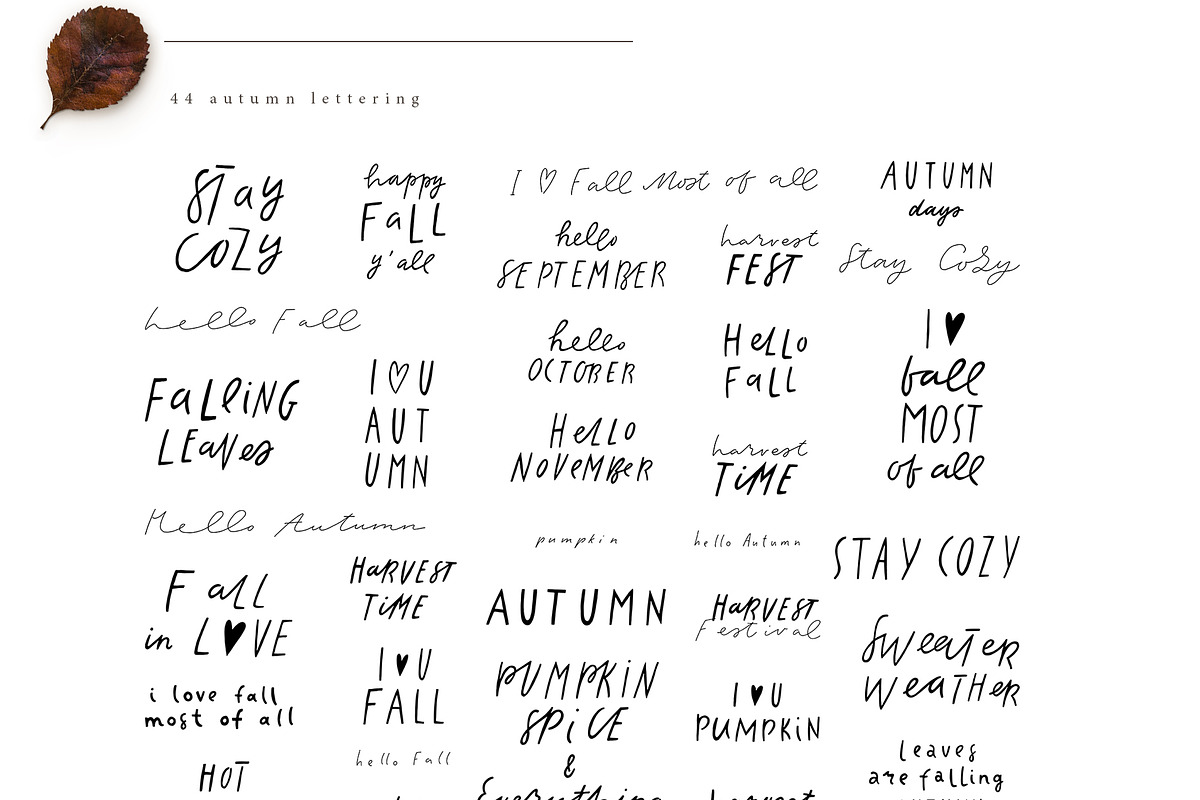 44 autumn lettering
STay
COZY
hello Fall
FaLLiNG
LEaVes
Hello Autumn
Fall
in L♥VE
i love fall
most of all
HOT
happy
FaLL
y'all
I ♡ U
AUT
UMN
HaRVEST
TiME
I ♥ U
FALL
hello Fall
I ♡ Fall Most of all
hello
SEPTEMBER
hello
OCTOBER
HeLLo
NoVeMBeR
pumpkin
AUTUMN
PUMPKiN
SPiCE
&
Everything
harvest
FEST
HeLLo
FaLL
harvest
TiME
hello Autumn
HaRVEST
Festival
I ♥ U
PUMPKiN
AUTUMN
days
Stay Cozy
I ♥
fall
MOST
of all
STAY COZY
SWeaTER
WeaTHeR
Leaves
are falling